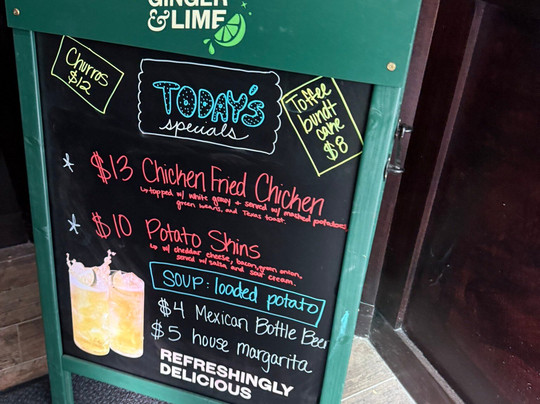 GINGER
&LIME
Churros
$12
TODAY'S
specials
Toffee
bundt
cake
$8
$13 Chicken Fried Chicken
topped w/ white gravy & served w/ mashed potatoes
green beans, and Texas toast.
$10 Potato Skins
w/ cheddar cheese, bacon, green onion.
served w/ salsa and sour cream.
SOUP: loaded potato
$4 Mexican Bottle Beer
$5 house margarita
REFRESHINGLY
DELICIOUS